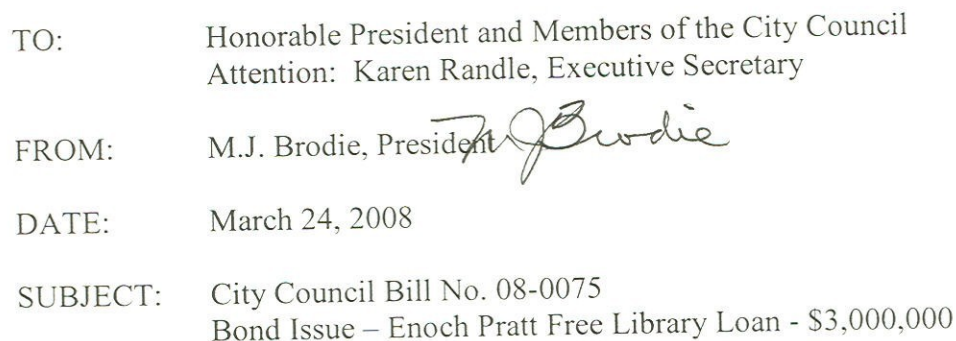 TO: Honorable President and Members of the City Council
Attention: Karen Randle, Executive Secretary
FROM: M.J. Brodie, President MJBrodie
DATE: March 24, 2008
SUBJECT: City Council Bill No. 08-0075
Bond Issue – Enoch Pratt Free Library Loan - $3,000,000